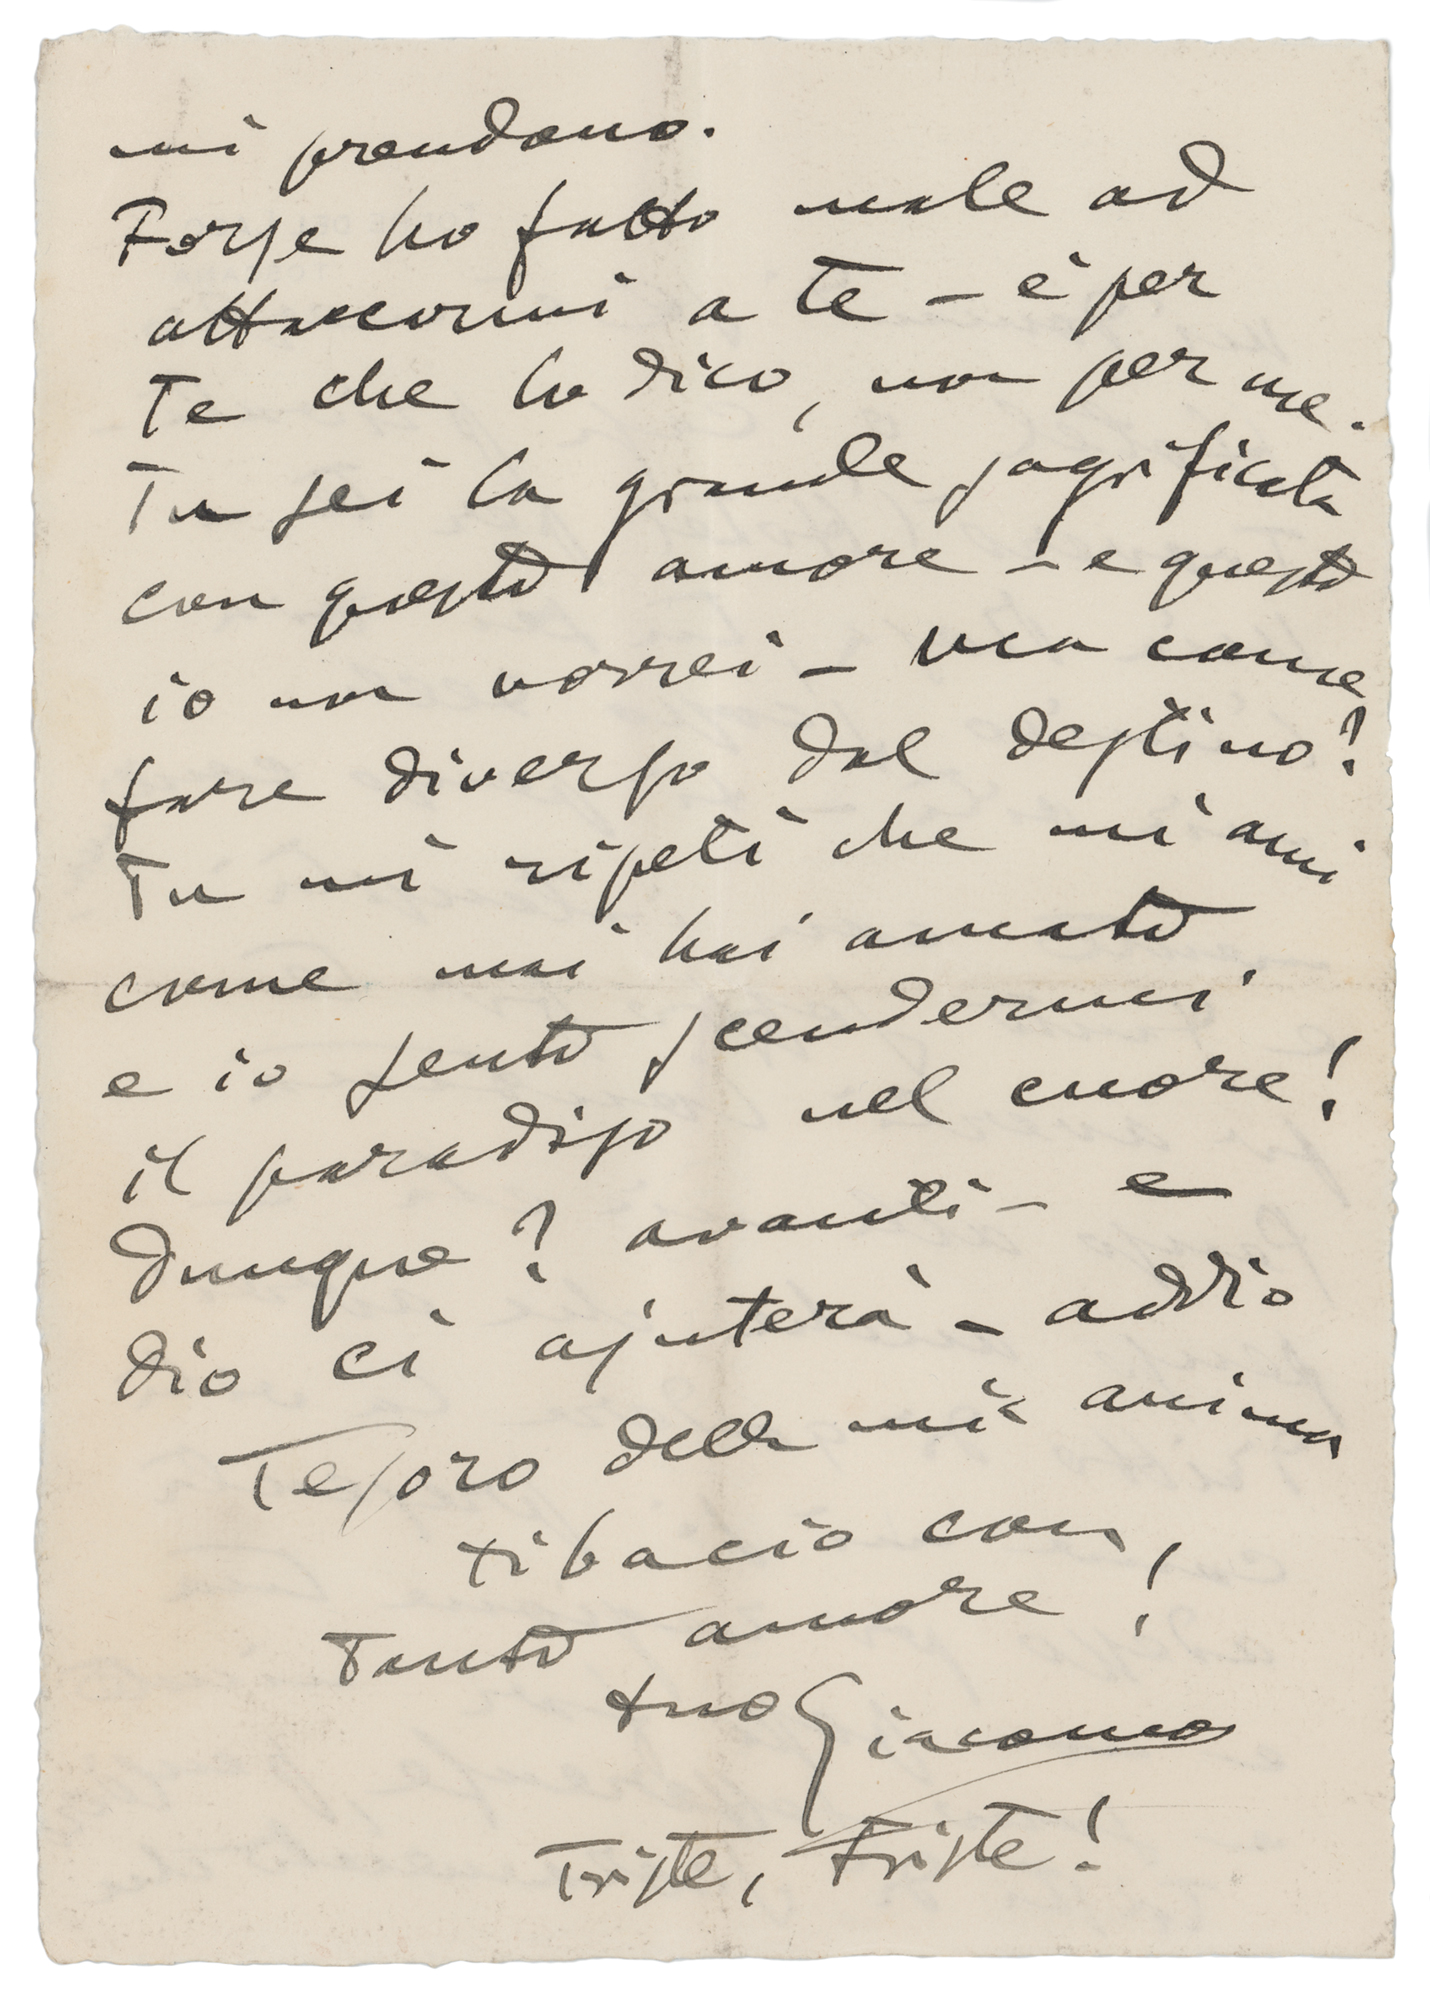 mi prendano.
Forse ho fatto male ad
attaccarmi a te – è per
Te che lo dico, non per me.
Tu sei la grande sagrificata
con questo amore – e questo
io non vorrei – ma come
fare diverso dal destino?
Tu mi ripeti che mi ami
come mai hai amato
e io sento scendermi
il paradiso nel cuore!
Dunque? avanti – e
Dio ci ajuterà – addio
Tesoro della mia anima
ti bacio con
Tanto amore!
tuo Giacomo
Triste, Triste!